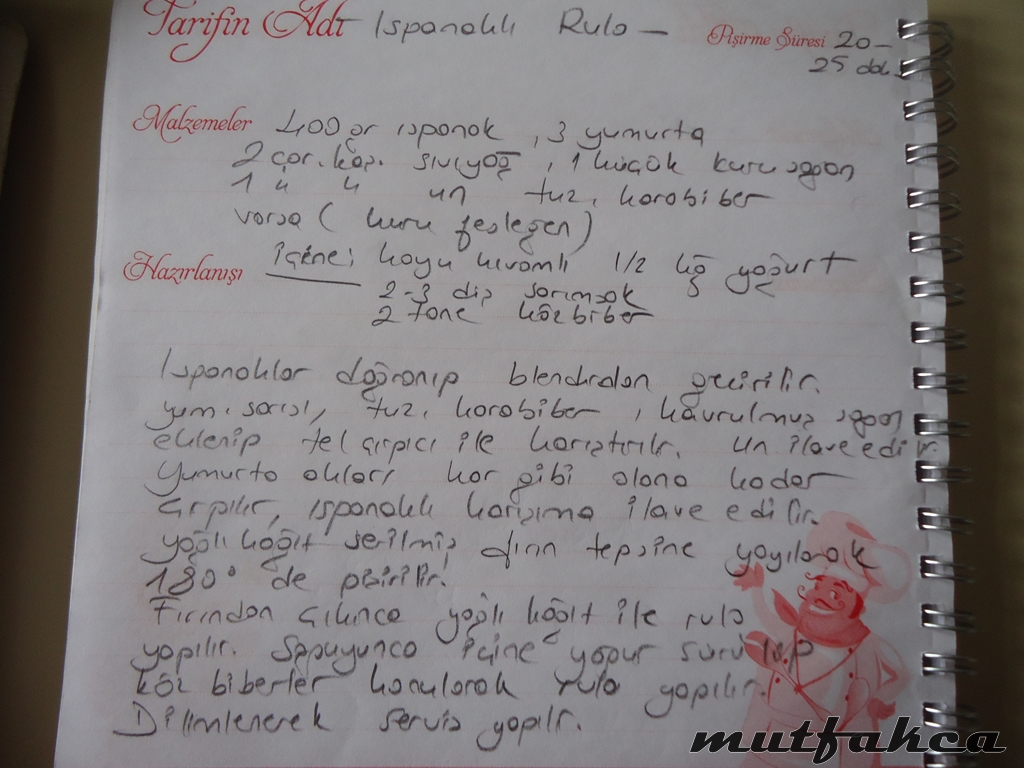 Tarifin Adı Ispanaklı Rulo — Pişirme Süresi 20-
25 dak.
Malzemeler 400 gr ıspanak , 3 yumurta
2 çor. kaş. sıvıyağ , 1 küçük kuru soğan
1 " " un tuz, karabiber
varsa ( kuru fesleğen )
Hazırlanışı içine; koyu kıvamlı 1/2 kğ yoğurt
2-3 diş sarımsak
2 tane köz biber
Ispanaklar doğranıp blendırdan geçirilir.
yum. sarısı, tuz, karabiber , kavrulmuş soğan
eklenip tel çırpıcı ile karıştırılır. un ilave edilir.
Yumurta akları kar gibi olana kadar
çırpılır, ıspanaklı karışıma ilave edilir.
yağlı kağıt serilmiş fırın tepsine yayılarak
180° de pişirilir.
Fırından çıkınca yağlı kağıt ile rulo
yapılır. Soğuyunca içine yoğur sürülüp
köz biberler konularak rulo yapılır.
Dilimlenerek servis yapılır.
mutfakca